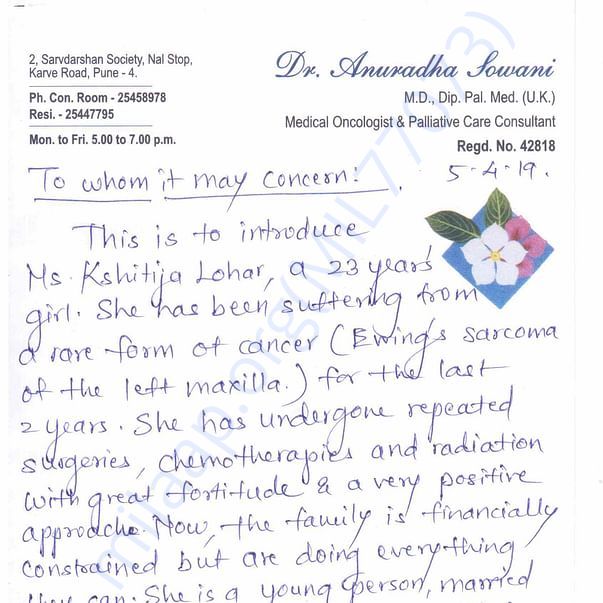 2, Sarvdarshan Society, Nal Stop,
Karve Road, Pune - 4.
Ph. Con. Room - 25458978
Resi. - 25447795
Mon. to Fri. 5.00 to 7.00 p.m.
Dr. Anuradha Sowani
M.D., Dip. Pal. Med. (U.K.)
Medical Oncologist & Palliative Care Consultant
Regd. No. 42818
5-4-19.
To whom it may concern:
This is to introduce
Ms. Kshitija Lohar, a 23 years
girl. She has been suffering from
a rare form of cancer (Ewing's sarcoma
of the left maxilla.) for the last
2 years. She has undergone repeated
surgeries, chemotherapies and radiation
with great fortitude & a very positive
approache. Now, the family is financially
constrained but are doing everything
they can. She is a young person, married
milaap.org(MIL77073)